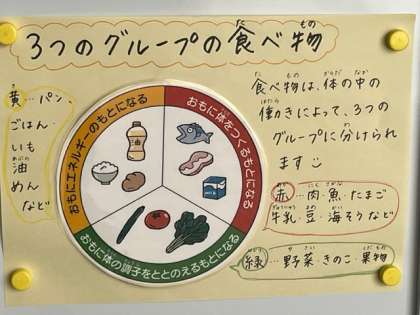 3つのグループの食べ物
黄…パン
ごはん・
いも
油
めん
など
おもにエネルギーのもとになる
おもに体をつくるもとになる
おもに体の調子をととのえるもとになる
食べ物は、体の中の
働きによって、3つの
グループに分けられ
ます
赤…肉・魚・たまご
牛乳・豆・海そうなど
緑…野菜・きのこ・果物